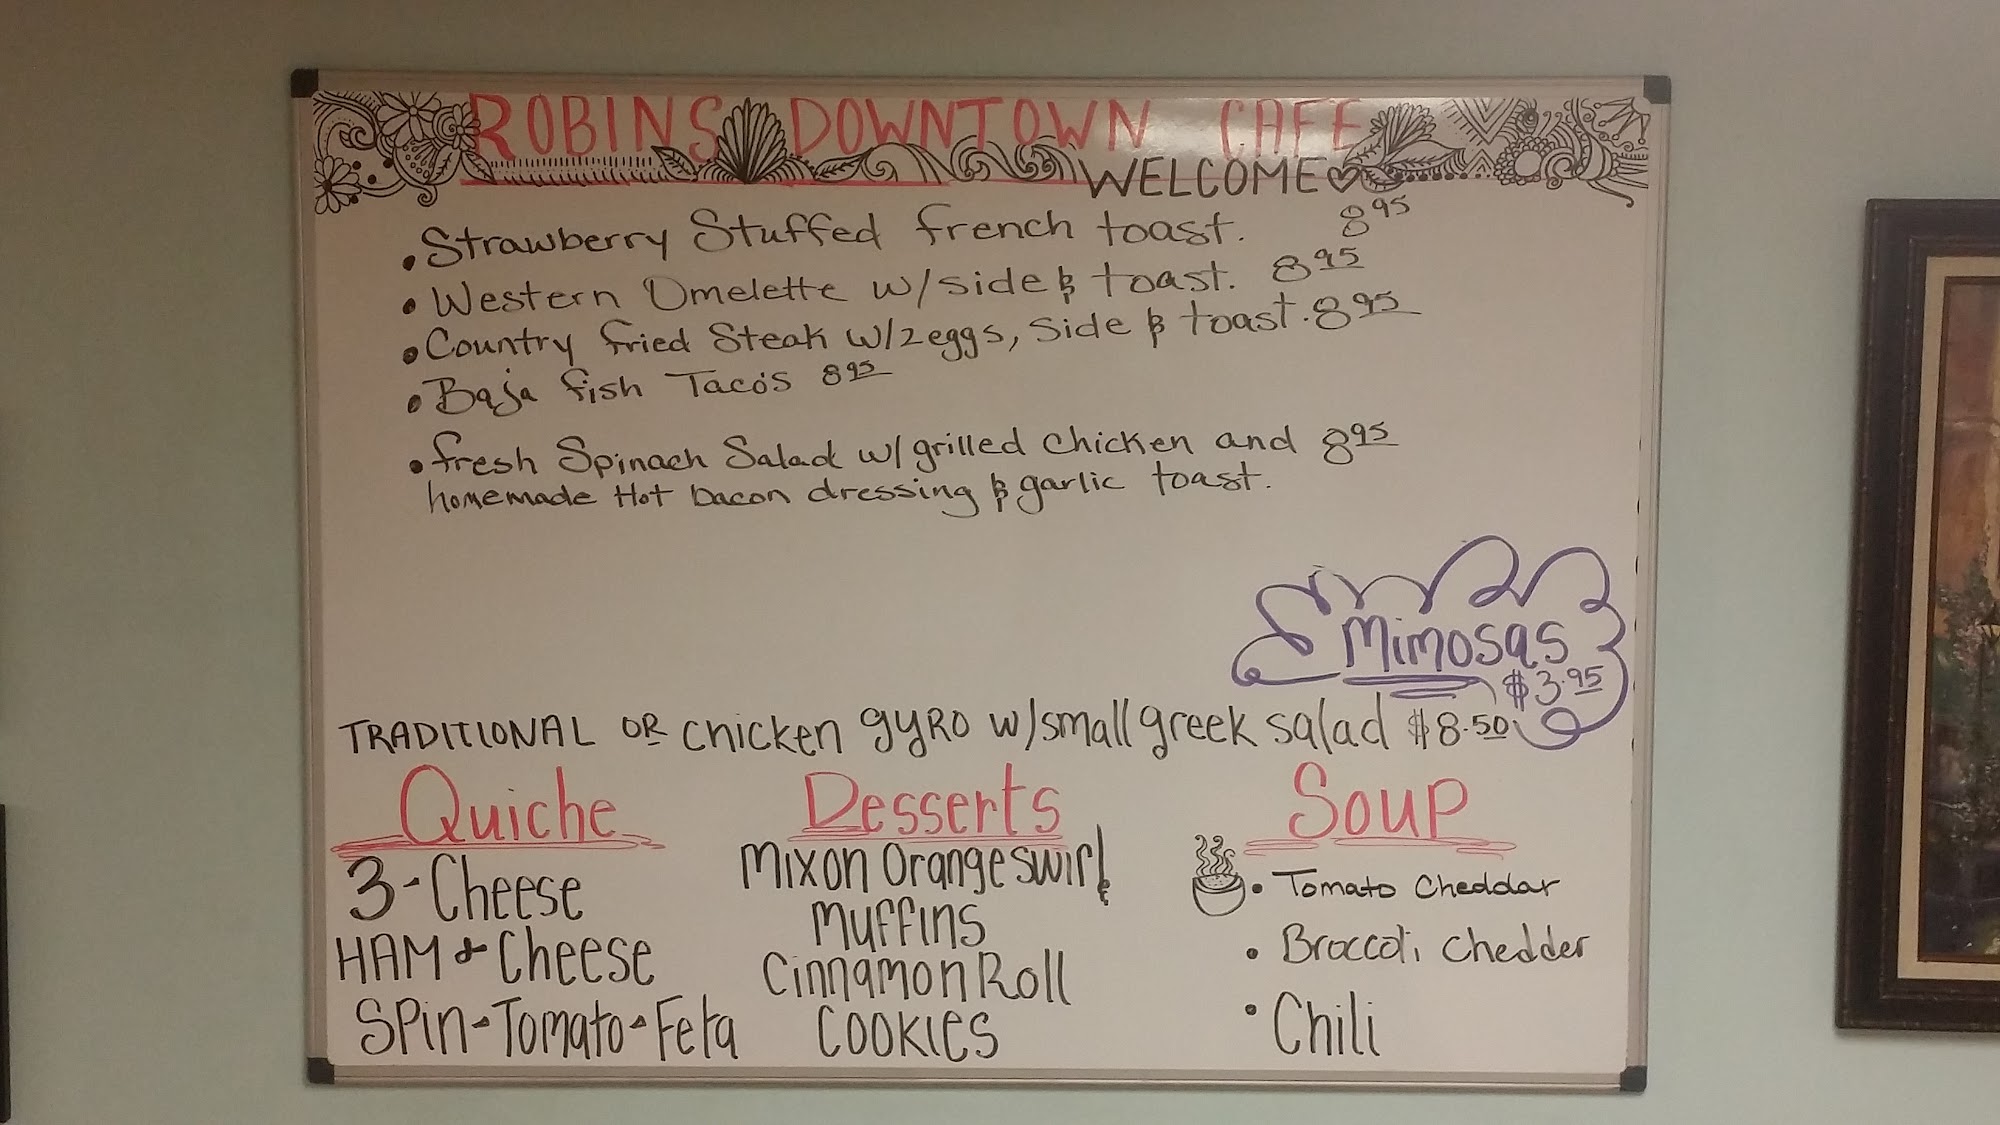 ROBINS DOWNTOWN CAFE
WELCOME
• Strawberry Stuffed french toast. 8 95
• Western Omelette w/side & toast. 8 95
• Country fried Steak w/2 eggs, Side & toast. 8 95
• Baja fish Taco's 8 95
• fresh Spinach Salad w/ grilled chicken and 8 95
homemade Hot bacon dressing & garlic toast.
Mimosas
$3.95
TRADITIONAL OR chicken gyro w/small greek salad $8.50
Quiche
3-Cheese
HAM & Cheese
SPin-Tomato-Feta
Desserts
Mixon Orange swirl
Muffins
Cinnamon Roll
COOKIES
Soup
• Tomato Cheddar
• Broccoli Chedder
• Chili